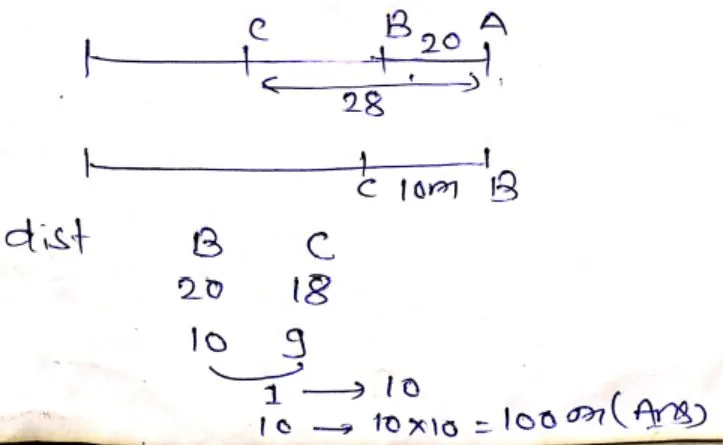 C B 20 A
28
C 10m B
dist B C
20 18
10 9
1 → 10
10 → 10×10 = 100 m (Ans)